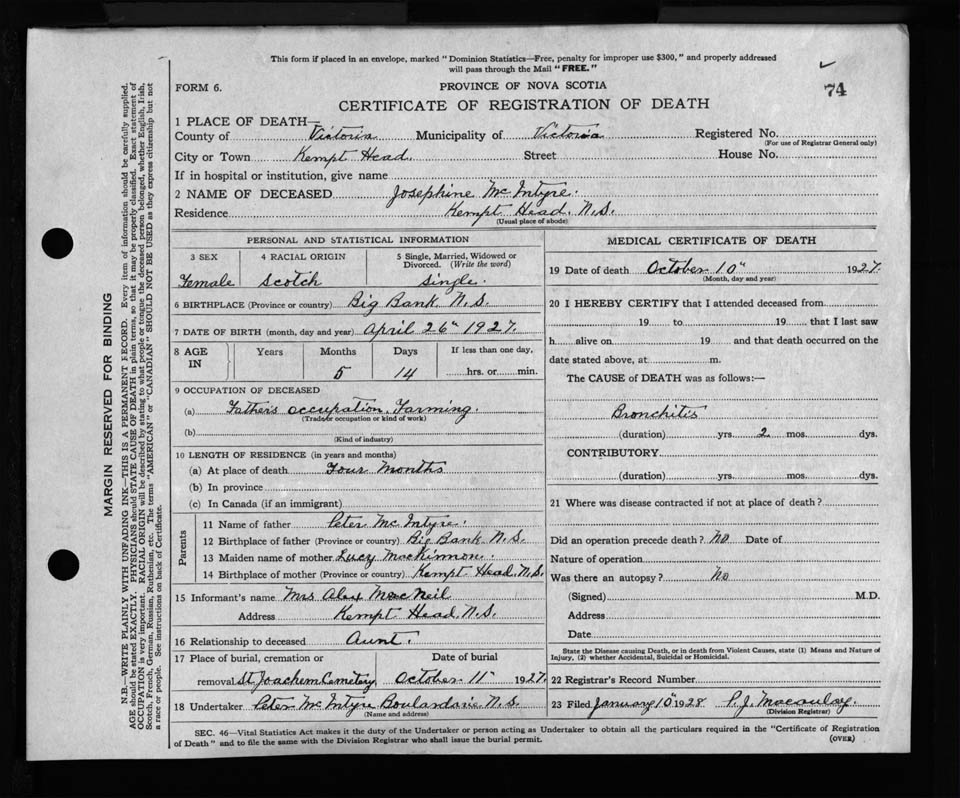 This form if placed in an envelope, marked "Dominion Statistics—Free, penalty for improper use $300," and properly addressed
will pass through the Mail "FREE."
FORM 6.
PROVINCE OF NOVA SCOTIA
74
CERTIFICATE OF REGISTRATION OF DEATH
1 PLACE OF DEATH—
County of Victoria Municipality of Victoria Registered No.
(For use of Registrar General only)
City or Town Kempt Head. Street House No.
If in hospital or institution, give name
2 NAME OF DECEASED Josephine Mc Intyre.
Residence Kempt Head. N.S.
(Usual place of abode)
PERSONAL AND STATISTICAL INFORMATION
3 SEX 4 RACIAL ORIGIN 5 Single, Married, Widowed or
Divorced. (Write the word)
Female Scotch Single.
6 BIRTHPLACE (Province or country) Big Bank. N.S.
7 DATE OF BIRTH (month, day and year) April 26th 1927.
8 AGE IN Years Months Days If less than one day,
5 14 hrs. or min.
9 OCCUPATION OF DECEASED
(a) Fathers occupation. Farming.
(Trade or occupation or kind of work)
(b)
(Kind of industry)
10 LENGTH OF RESIDENCE (in years and months)
(a) At place of death Four Months
(b) In province
(c) In Canada (if an immigrant)
Parents
11 Name of father Peter Mc Intyre.
12 Birthplace of father (Province or country) Big Bank N.S.
13 Maiden name of mother Lucy MacKinnon.
14 Birthplace of mother (Province or country) Kempt Head. N.S.
15 Informant's name Mrs Alex MacNeil
Address Kempt Head. N.S.
16 Relationship to deceased Aunt.
17 Place of burial, cremation or Date of burial
removal St Joachem Cemetery October 11th 1927.
18 Undertaker Peter Mc Intyre Boulardarie N.S.
(Name and address)
MEDICAL CERTIFICATE OF DEATH
19 Date of death October 10th 1927.
(Month, day and year)
20 I HEREBY CERTIFY that I attended deceased from
19 to 19 that I last saw
h alive on 19 and that death occurred on the
date stated above, at m.
The CAUSE of DEATH was as follows:—
Bronchitis
(duration) yrs. 2 mos. dys.
CONTRIBUTORY
(duration) yrs. mos. dys.
21 Where was disease contracted if not at place of death?
Did an operation precede death? No Date of
Nature of operation
Was there an autopsy? No
(Signed) M.D.
Address
Date
State the Disease causing Death, or in death from Violent Causes, state (1) Means and Nature of
Injury, (2) whether Accidental, Suicidal or Homicidal.
22 Registrar's Record Number
23 Filed January 10th 1928 P. J. Macaulay
(Division Registrar)
SEC. 46—Vital Statistics Act makes it the duty of the Undertaker or person acting as Undertaker to obtain all the particulars required in the "Certificate of Registration
of Death" and to file the same with the Division Registrar who shall issue the burial permit.
(OVER)
MARGIN RESERVED FOR BINDING
N.B.—WRITE PLAINLY WITH UNFADING INK—THIS IS A PERMANENT RECORD. Every item of information should be carefully supplied.
AGE should be stated EXACTLY. PHYSICIANS should STATE CAUSE OF DEATH in plain terms, so that it may be properly classified. Exact statement of
OCCUPATION is very important. RACIAL ORIGIN will be described by stating to what people or tongue the deceased person belonged, whether English, Irish,
Scotch, French, German, Russian, Ruthenian, etc. The terms "AMERICAN" or "CANADIAN" SHOULD NOT BE USED as they express citizenship but not
a race or people. See instructions on back of Certificate.